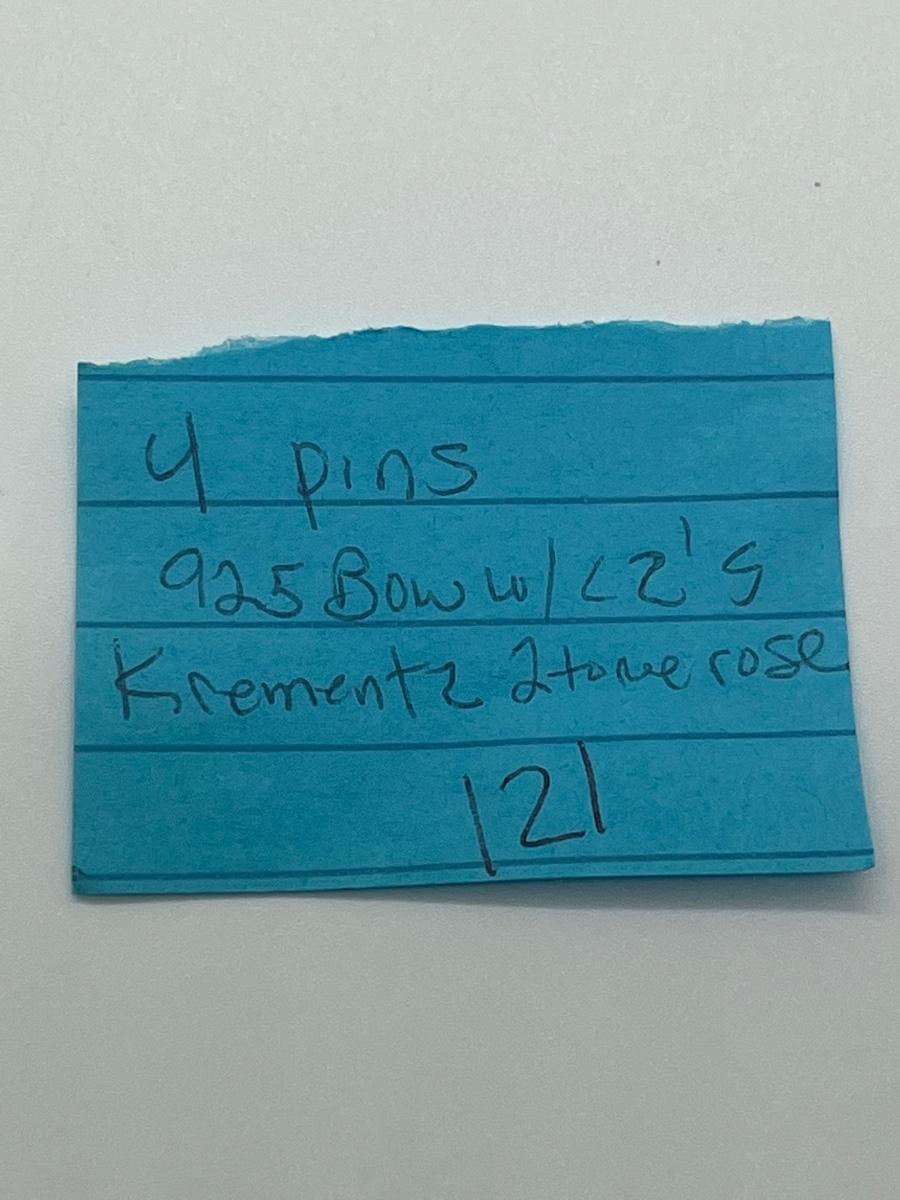 4 pins
925 Bow w/ CZ's
Krementz 2tone rose
121